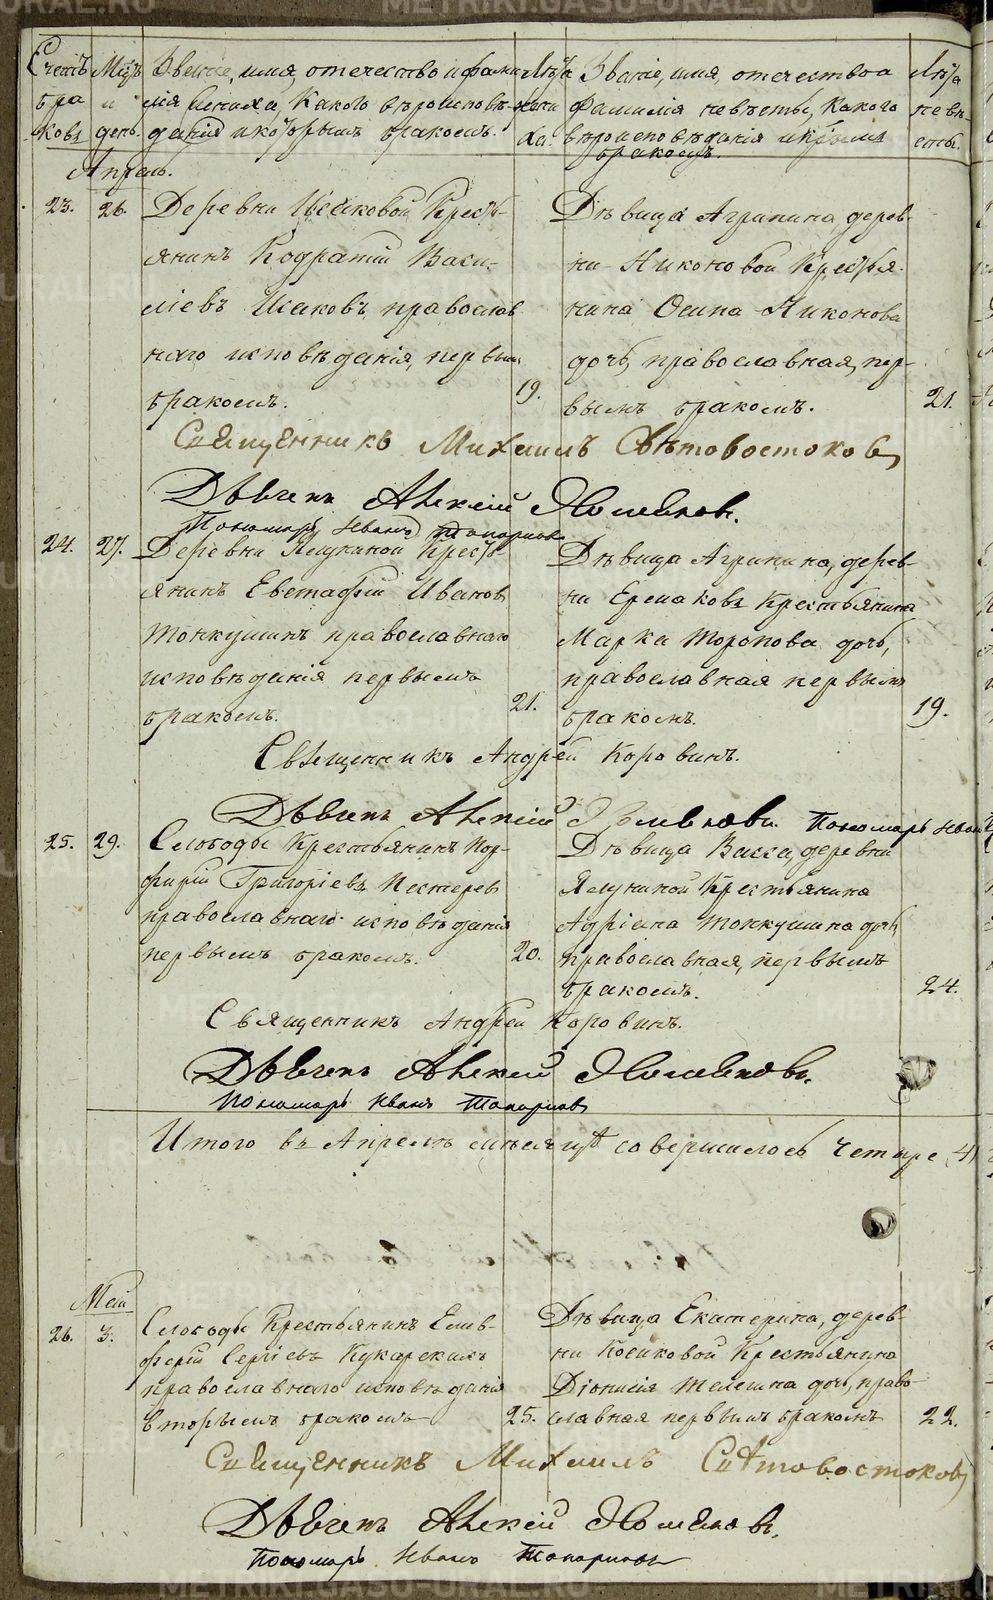 Счетъ бра ковъ
Мцъ и день.
Званіе, имя, отечество и фами
лія жениха, какого вѣроисповѣ
данія и которымъ бракомъ.
Лѣта жени ха.
Званіе, имя, отечество и
фамилія невѣсты, какого
вѣроисповѣданія и
бракомъ.
Лѣта невѣ сты.
Апрель.
23. 26. Деревни Исаковой Кресть-
янинъ Кодратій Васи-
ліевъ Исаковъ, православ
наго исповѣданія, первым
бракомъ. 19.
Дѣвица Агрипина, дерев-
ни Никоновой Крестья-
нина Осипа Никонова
дочь, православная, пер-
вымъ бракомъ. 21.
Священникъ Михаилъ Свѣтовостоковъ
Дьячекъ Алексій
Пономарь Иванъ Топорковъ
24. 27. Деревни Ялуниной Кресть-
янинъ Евстафій Ивановъ
Тонкушинъ православнаго
исповѣданія первымъ
бракомъ. 21.
Дѣвица Агрипина, дерев-
ни Ермаковъ Крестьянина
Марка Торопова дочь,
православная первымъ
бракомъ. 19.
Священникъ Андрей Коровинъ.
Дьячекъ Алексій
Пономарь Иван
25. 29. Слободы Крестьянинъ Пор-
фирій Григоріевъ Пестеревъ
православнаго исповѣданія
первымъ бракомъ. 20.
Дѣвица Васса, деревни
Ялуниной Крестьянина
Адріана Тонкушина дочь
православная, первымъ
бракомъ. 24.
Священникъ Андрей Коровинъ.
Дьячекъ Алексій
Пономарь Иванъ Топорковъ
Итого въ Апрелѣ мѣсяцѣ совершилось четыре (4)
Май
26. 3. Слободы Крестьянинъ Елев-
ферій Сергіевъ Кукарскихъ
православнаго исповѣданія
вторымъ бракомъ 25.
Дѣвица Екатерина, дерев-
ни Косиковой Крестьянина
Діонисія Телегина дочь, право-
славная первымъ бракомъ 22.
Священникъ Михаилъ Свѣтовостоковъ
Дьячекъ Алексій
Пономарь Иванъ Топорковъ
METRIKI.GASU-URAL.RU